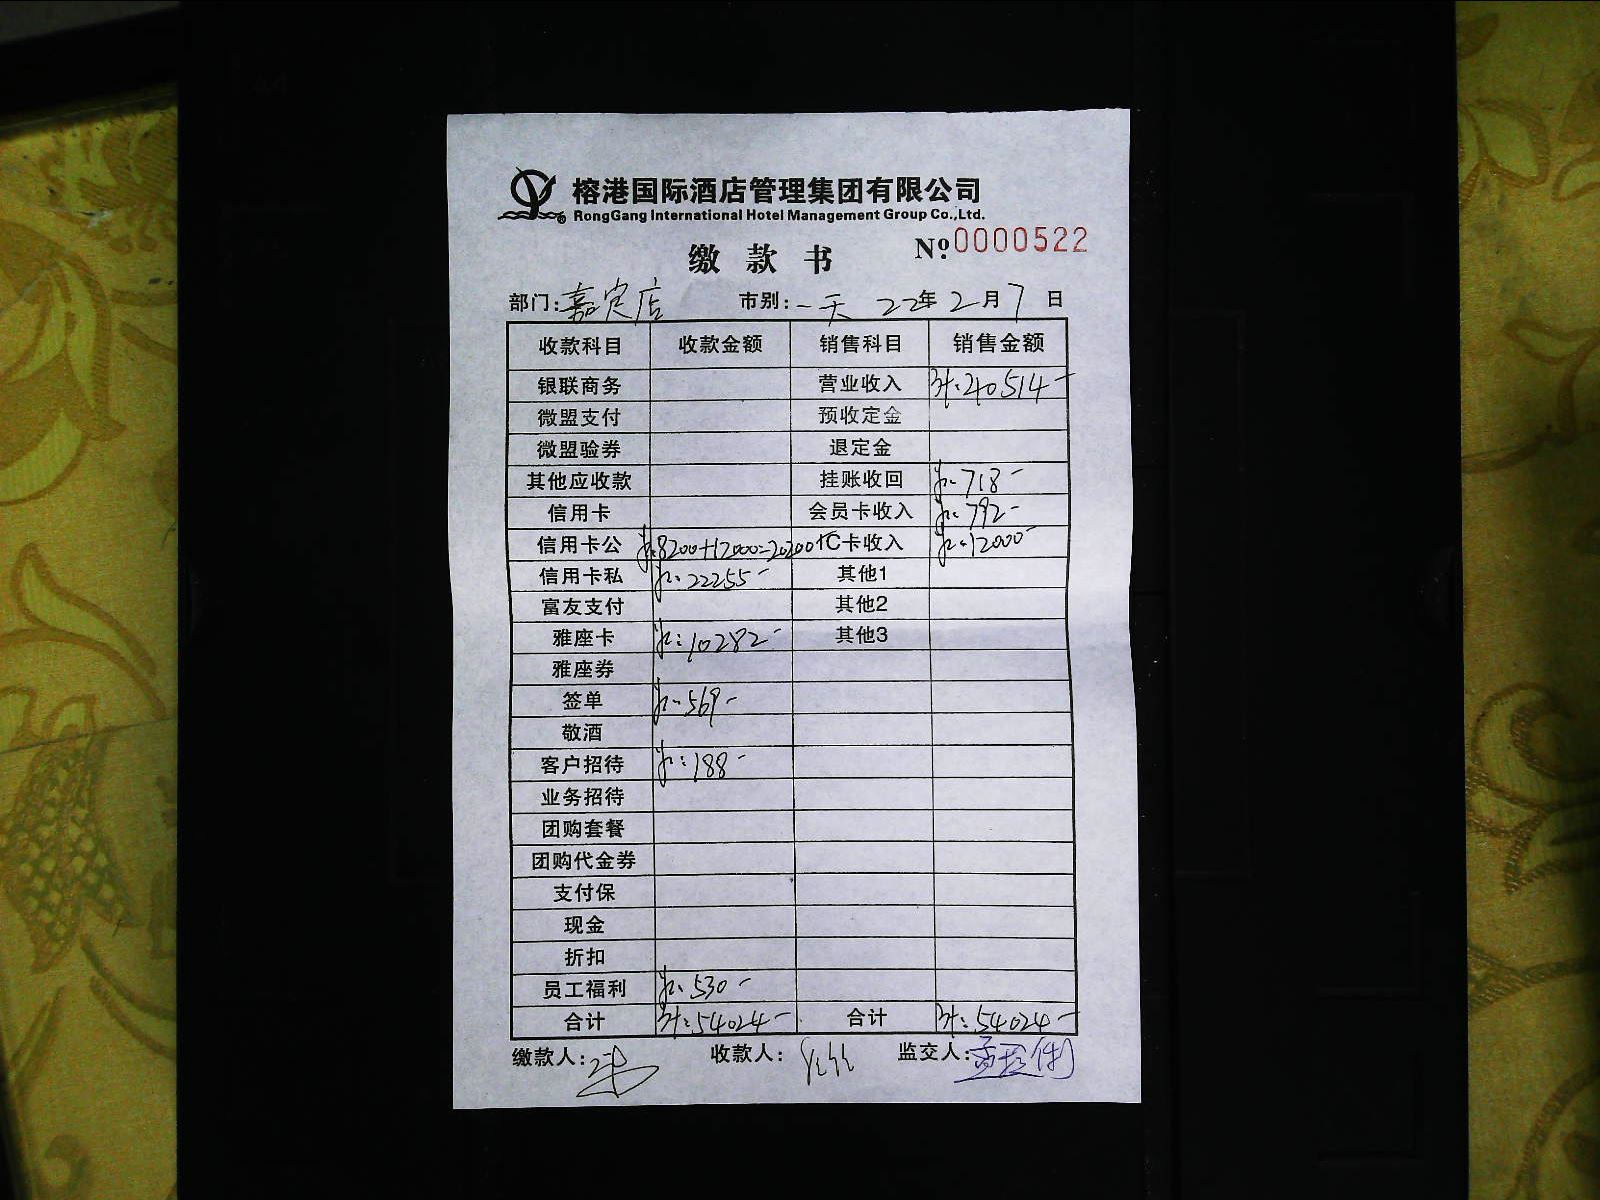 榕港国际酒店管理集团有限公司
RongGang International Hotel Management Group Co.,Ltd.
缴款书 Nº:0000522
部门:嘉定店 市别:一天 22年2月7日
收款科目 收款金额 销售科目 销售金额
银联商务 营业收入 计:40514-
微盟支付 预收定金
微盟验券 退定金
其他应收款 挂账收回 718-
信用卡 会员卡收入 792-
信用卡公 8200+12000=20200 IC卡收入 12000-
信用卡私 22255- 其他1
富友支付 其他2
雅座卡 10282- 其他3
雅座券
签单 569-
敬酒
客户招待 188-
业务招待
团购套餐
团购代金券
支付保
现金
折扣
员工福利 530-
合计 计:54024- 合计 计:54024-
缴款人: 收款人: 监交人: